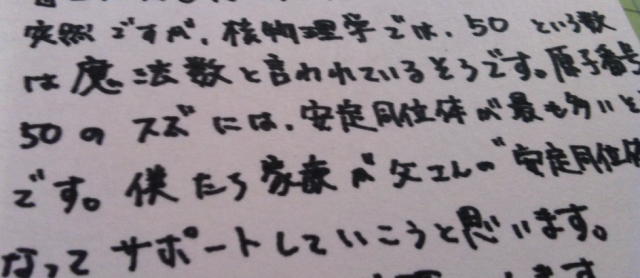 突然ですが、核物理学では、50という数
は魔法数と言われているそうです。原子番号
50のスズには、安定同位体が最も多いと
です。僕たち家族が父さんの"安定同位体
なってサポートしていこうと思います。
ます